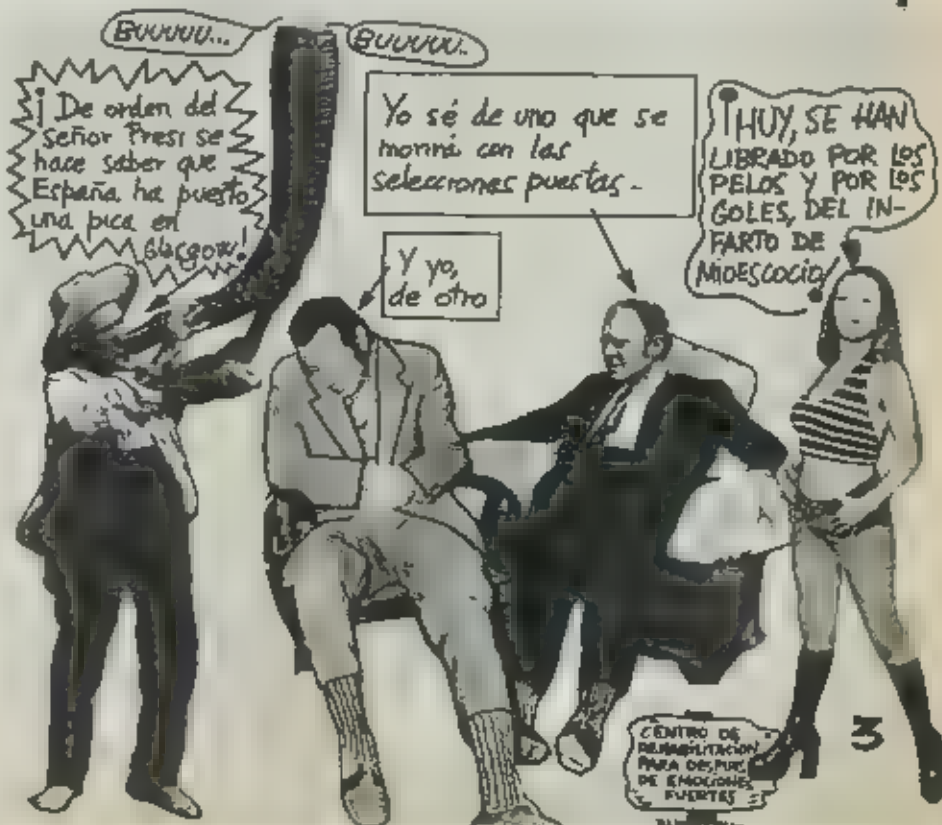 BUUUUU...
BUUUUU..
¡De orden del
señor Presi se
hace saber que
España ha puesto
una pica en
Glasgow!
Yo sé de uno que se
morirá con las
selecciones puestas-
Y yo,
de otro
¡HUY, SE HAN
LIBRADO POR LOS
PELOS Y POR LOS
GOLES, DEL IN-
FARTO DE
MIOESCOCIO!
CENTRO DE
REHABILITACION
PARA DESPUES
DE EMOCIONES
FUERTES
3